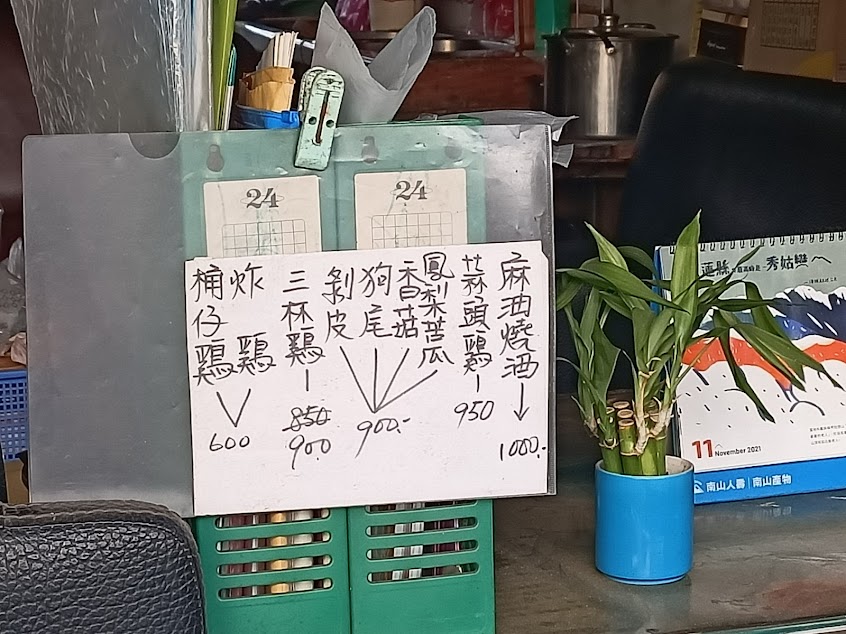 24
24
麻油燒酒
1000.-
蒜頭鷄
950
鳳梨苦瓜
香菇
狗尾
剝皮
900.-
三杯鷄
850
900
炸鷄
桶仔鷄
600
秀姑巒
11 November 2021
南山人壽 南山產物